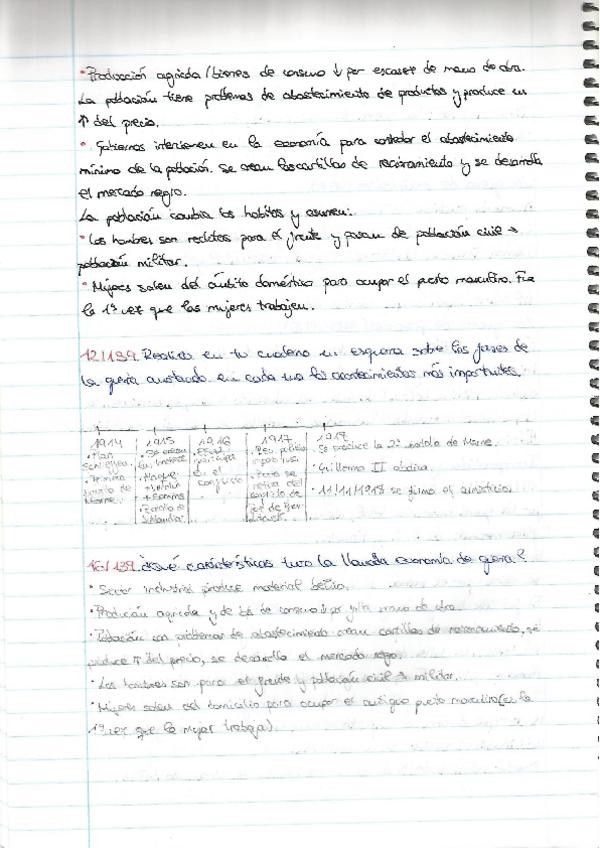 • Producción agrícola / bienes de consumo ↓ por escasez de mano de obra.
La población tiene problemas de abastecimiento de productos y produce un
↑ del precio.
• Gobiernos intervienen en la economía para controlar el abastecimiento
mínimo de la población. Se crean las cartillas de racionamiento y se desarrolla
el mercado negro.
La población cambia los hábitos y asumen:
• Los hombres son reclutados para el frente y pasan de población civil →
población militar.
• Mujeres salen del ámbito doméstico para ocupar el puesto masculino. Fue
la 1ª vez que las mujeres trabajen.
12/139. Realiza en tu cuaderno un esquema sobre las fases de
la guerra anotando en cada una los acontecimientos más importantes.
1914
• Plan
Schlieffen
• Primera
batalla de
Marne.
1915
1916
EEUU
en el
conflicto
1917
• Rev.
retira del
conflicto
1918
• Se produce la 2ª batalla de Marne.
• Guillermo II abdica.
• 11/11/1918 se firma el armisticio.
16/139. ¿Qué características tuvo la llamada economía de guerra?
• Sector industrial produce material bélico.
• Producción agrícola y de de consumo ↓ por mano de obra.
• Población con problemas de abastecimiento crean cartillas de racionamiento, se
produce ↑ del precio, se desarrolla el mercado negro.
• Los hombres son para el frente y población civil → militar.
• Mujeres salen del domicilio para ocupar el antiguo puesto masculino (es la
1ª vez que la mujer trabaja).